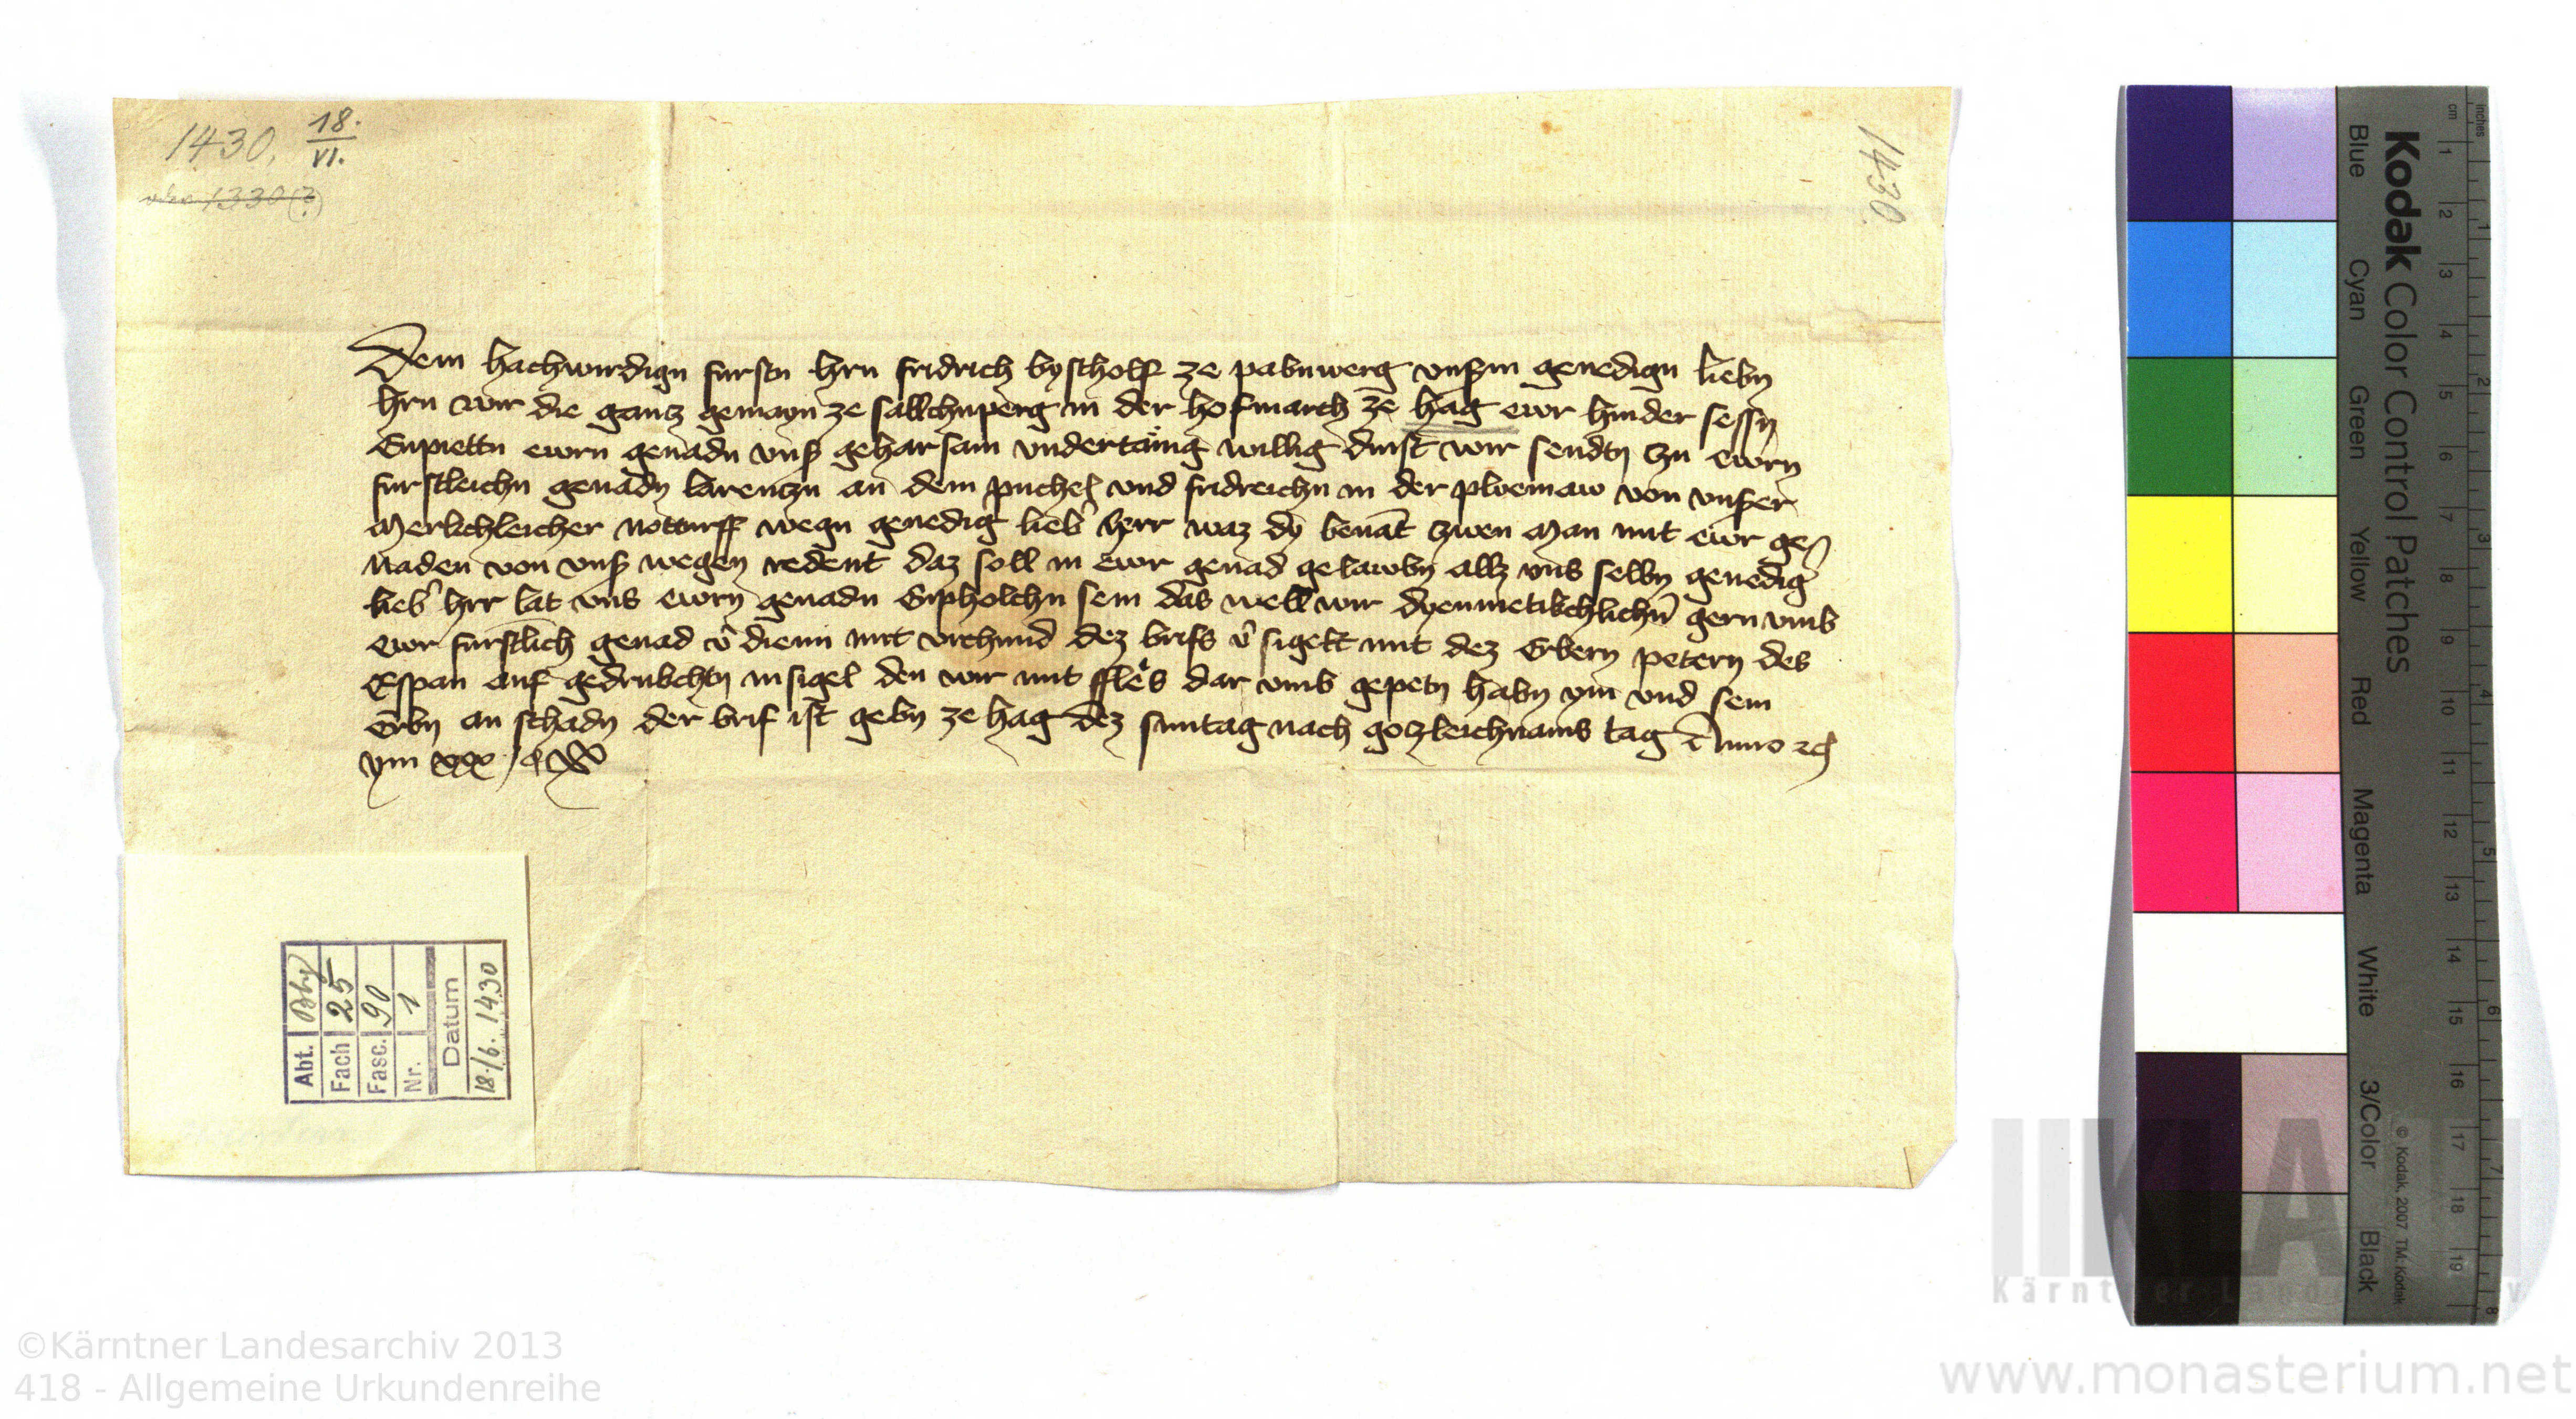 1430, 18.
VI.
oder 1330(?)
1430.
Dem hachwirdign fursten hrn fridrich byscholf ze pabnwerg unserm genedign liebn
hrn wir die gantz gemayn ze sallchnperg in der hofmarch ze hag ewr hinder sessn
Enpiettn ewrn genadn uns geharsam undertänig willig dinst wir sendtn zu ewrn
furstleichn genadn larentzn an dem puchel und fridreichn in der ploemaw von unser
Merkchleicher notturff wegn genedig lieber herr waz dy benāt zwen man mit ewr ge
naden von uns wegen redent daz soll in ewr genad gelawbn allz uns selbn genedig
lieber hrr lat uns ewrn genadn Enpholchn sein das well wir dyemuetikchlichn gern umb
ewr furstlich genad v dienn mit urchund dez brifs v sigelt mit dez Erbern petern des
Espan auf gedrukchtn insigel den wir mit fleis dar umb gepetn habn ym und sein
Erbn an schadn der brif ist gebn ze hag dez suntag nach gotzleichnams tag Anno etc
ym xxx
Abt.
Fach 25
Fasc. 90
Nr. 1
Datum
18./6. 1430
Kodak Color Control Patches
Blue Cyan Green Yellow Red Magenta White 3/Color Black
© Kodak, 2007 TM: Kodak
inches 1 2 3 4 5 6 7 8
cm 1 2 3 4 5 6 7 8 9 10 11 12 13 14 15 16 17 18 19
©Kärntner Landesarchiv 2013
418 - Allgemeine Urkundenreihe
www.monasterium.net